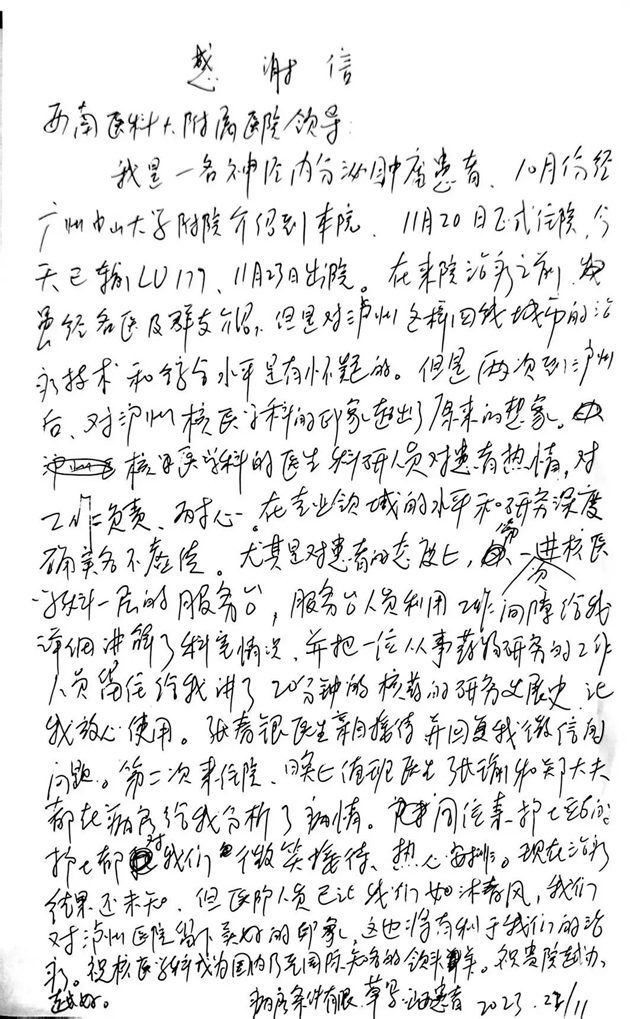 感谢信
西南医科大附属医院领导:
我是一名神经内分泌肿瘤患者、10月份经
广州中山大学附院介绍到本院、11月20日正式住院,今
天已输LU177、11月23日出院。在来院治疗之前,
虽经名医及群友介绍,但是对泸州这样四线城市的治
疗技术和综合水平是有怀疑的。但是两次到泸州
后、对泸州核医学科的印象超出了原来的想象。
核医学科的医生科研人员对患者热情,对
工作负责、耐心。在专业领域的水平和研究深度
确实名不虚传。尤其是对患者的态度上,第一次进核医
学科一层的服务台,服务台人员利用工作间隙给我
详细讲解了科室情况、并把一位从事药物研究的工作
人员留住给我讲了20分钟的核药的研究发展史、让
我放心使用。张春银医生亲自接待并回复我微信的
问题。第二次来住院、晚上值班医生张瑜和郑大夫
都在病房给我分析了病情。护士站的
护士都对我们微笑接待、热心安排。现在治疗
结果还未知、但医护人员已让我们如沐春风,我们
对泸州医院留下美好的印象,这也将有利于我们的治
疗。祝核医学科成为国内乃至国际知名的领头羊。祝贵院越办
越好。
病房条件有限、草写 患者 2023.23/11